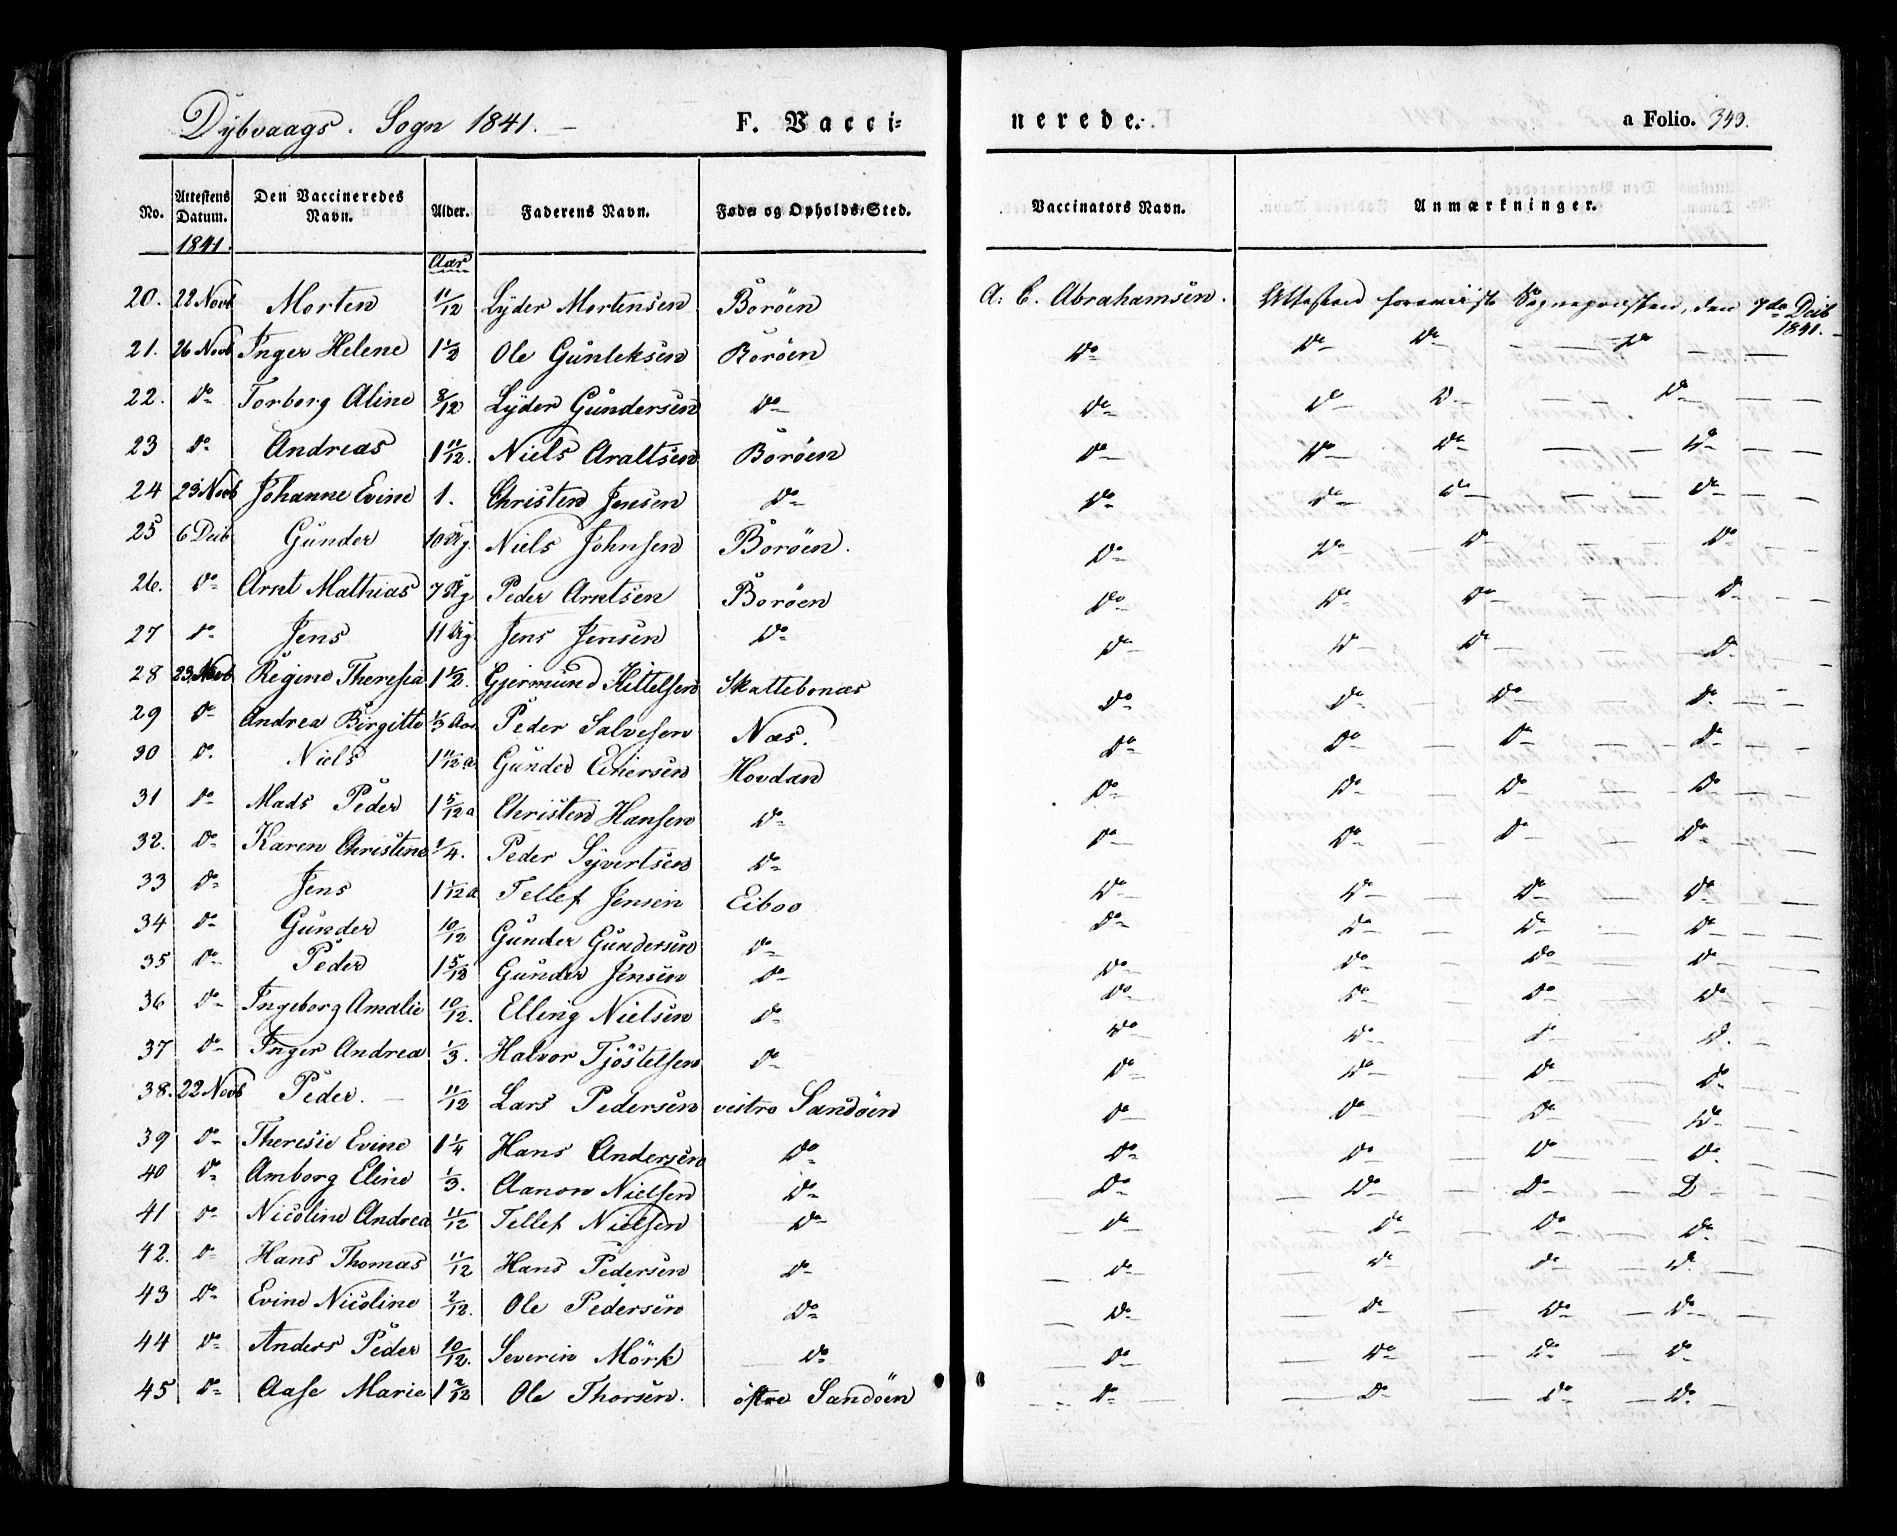 Dybvaags. Sogn 1841. F. Vacci= nerede. a Folio. 343.
No. Attestens Datum. Den Vaccineredes Navn. Alder. Faderens Navn. Føde og Opholds-Sted. Vaccinators Navn. Anmærkninger.
1841. Aar
20. 22 Novb Morten 11/12 Lyder Mortensen Borøen A. C. Abrahamsen. Attesten foreviist Sognepræsten, den 7de Decb 1841.
21. 26 Novb Inger Helene 1 1/2 Ole Gunleksen Borøen Do Do Do Do
22. Do Torborg Aline 8/12 Lyder Gundersen Do Do Do Do Do
23 Do Andreas 1 11/12. Niels Araltsen Borøen Do Do Do Do
24 23 Novb Johanne Evine 1. Christen Jensen Do Do Do Do Do
25 6 Decb Gunder 10 Ug. Niels Johnsen Borøen. Do Do Do Do
26. Do Arnt Mathias 7 Ug Peder Arntsen Borøen Do Do Do Do
27 Do Jens 11 Ug. Jens Jensen Do Do Do Do Do
28 23 Novb Regine Theresia 1 1/2. Gjermund Kittelsen Skattebonæs Do Do Do Do
29 Do Andrea Birgitte 1/3 Aar Peder Salvesen Næs. Do Do Do Do
30 Do Niels 1 11/12 a Gunder Einersen Hovdan Do Do Do Do
31 Do Mads Peder 1 5/12 a Christen Hansen Do Do Do Do Do
32. Do Karen Christine /4. Peder Syvertsen Do Do Do Do Do
33 Do Jens 1 1/12 a Tellef Jensen Eiboo Do Do Do Do
34 Do Gunder 10/12 Gunder Gundersen Do Do Do Do Do
35 Do Peder 1 5/12 Gunder Jensen Do Do Do Do Do
36 Do Ingeborg Amalie 10/12. Elling Nielsen Do Do Do Do Do
37 Do Inger Andrea 1/3. Halvor Tjöstelsen Do Do Do Do Do
38. 22 Novb Peder. 11/12 Lars Pedersen vestre Sandøen Do Do Do Do
39 Do Theresie Evine 1 1/4 Hans Andersen Do Do Do Do Do
40 Do Amborg Eline 1/3. Aanon Nielsen Do Do Do Do D
41 Do Nicoline Andrea 11/12 Tellef Nielsen Do Do Do Do Do
42. Do Hans Thomas 11/12 Hans Pedersen Do Do Do Do Do
43 Do Evine Nicoline 2/12. Ole Pedersen Do Do Do Do Do
44 Do Anders Peder 10/12. Severin Mörk Do Do Do Do Do
45 Do Aase Marie 1 2/12 Ole Thorsen. östre Sandøen Do Do Do Do